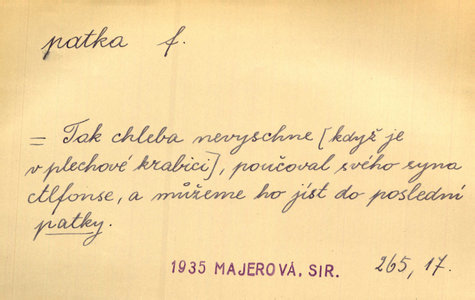 patka f.
= Tak chleba nevyschne [když je
v plechové krabici], poučoval svého syna
Alfonse, a můžeme ho jíst do poslední
patky.
1935 MAJEROVÁ, SIR. 265, 17.